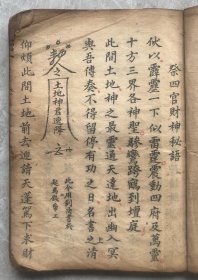 祭四官財神秘語
伏以霹靂一下似雷霆震動四府及萬靈
十方三界各神聖驂鸞跨鶴到壇庭
此間土地神之最靈通天達地出幽入冥
與吾傳奏不得留停有功之日名書上清
敕令土地神君速降
仰煩此間土地前去迎請天蓬駕下求財